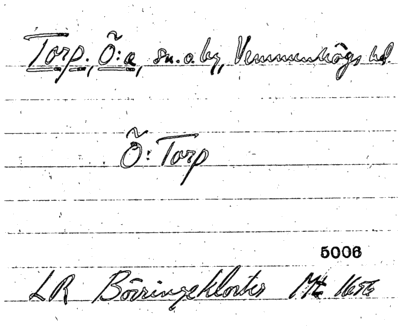 Torp, Ö:a, sn. o. by, Vemmenhögs hd
Ö: Torp
5006
LR Börringekloster